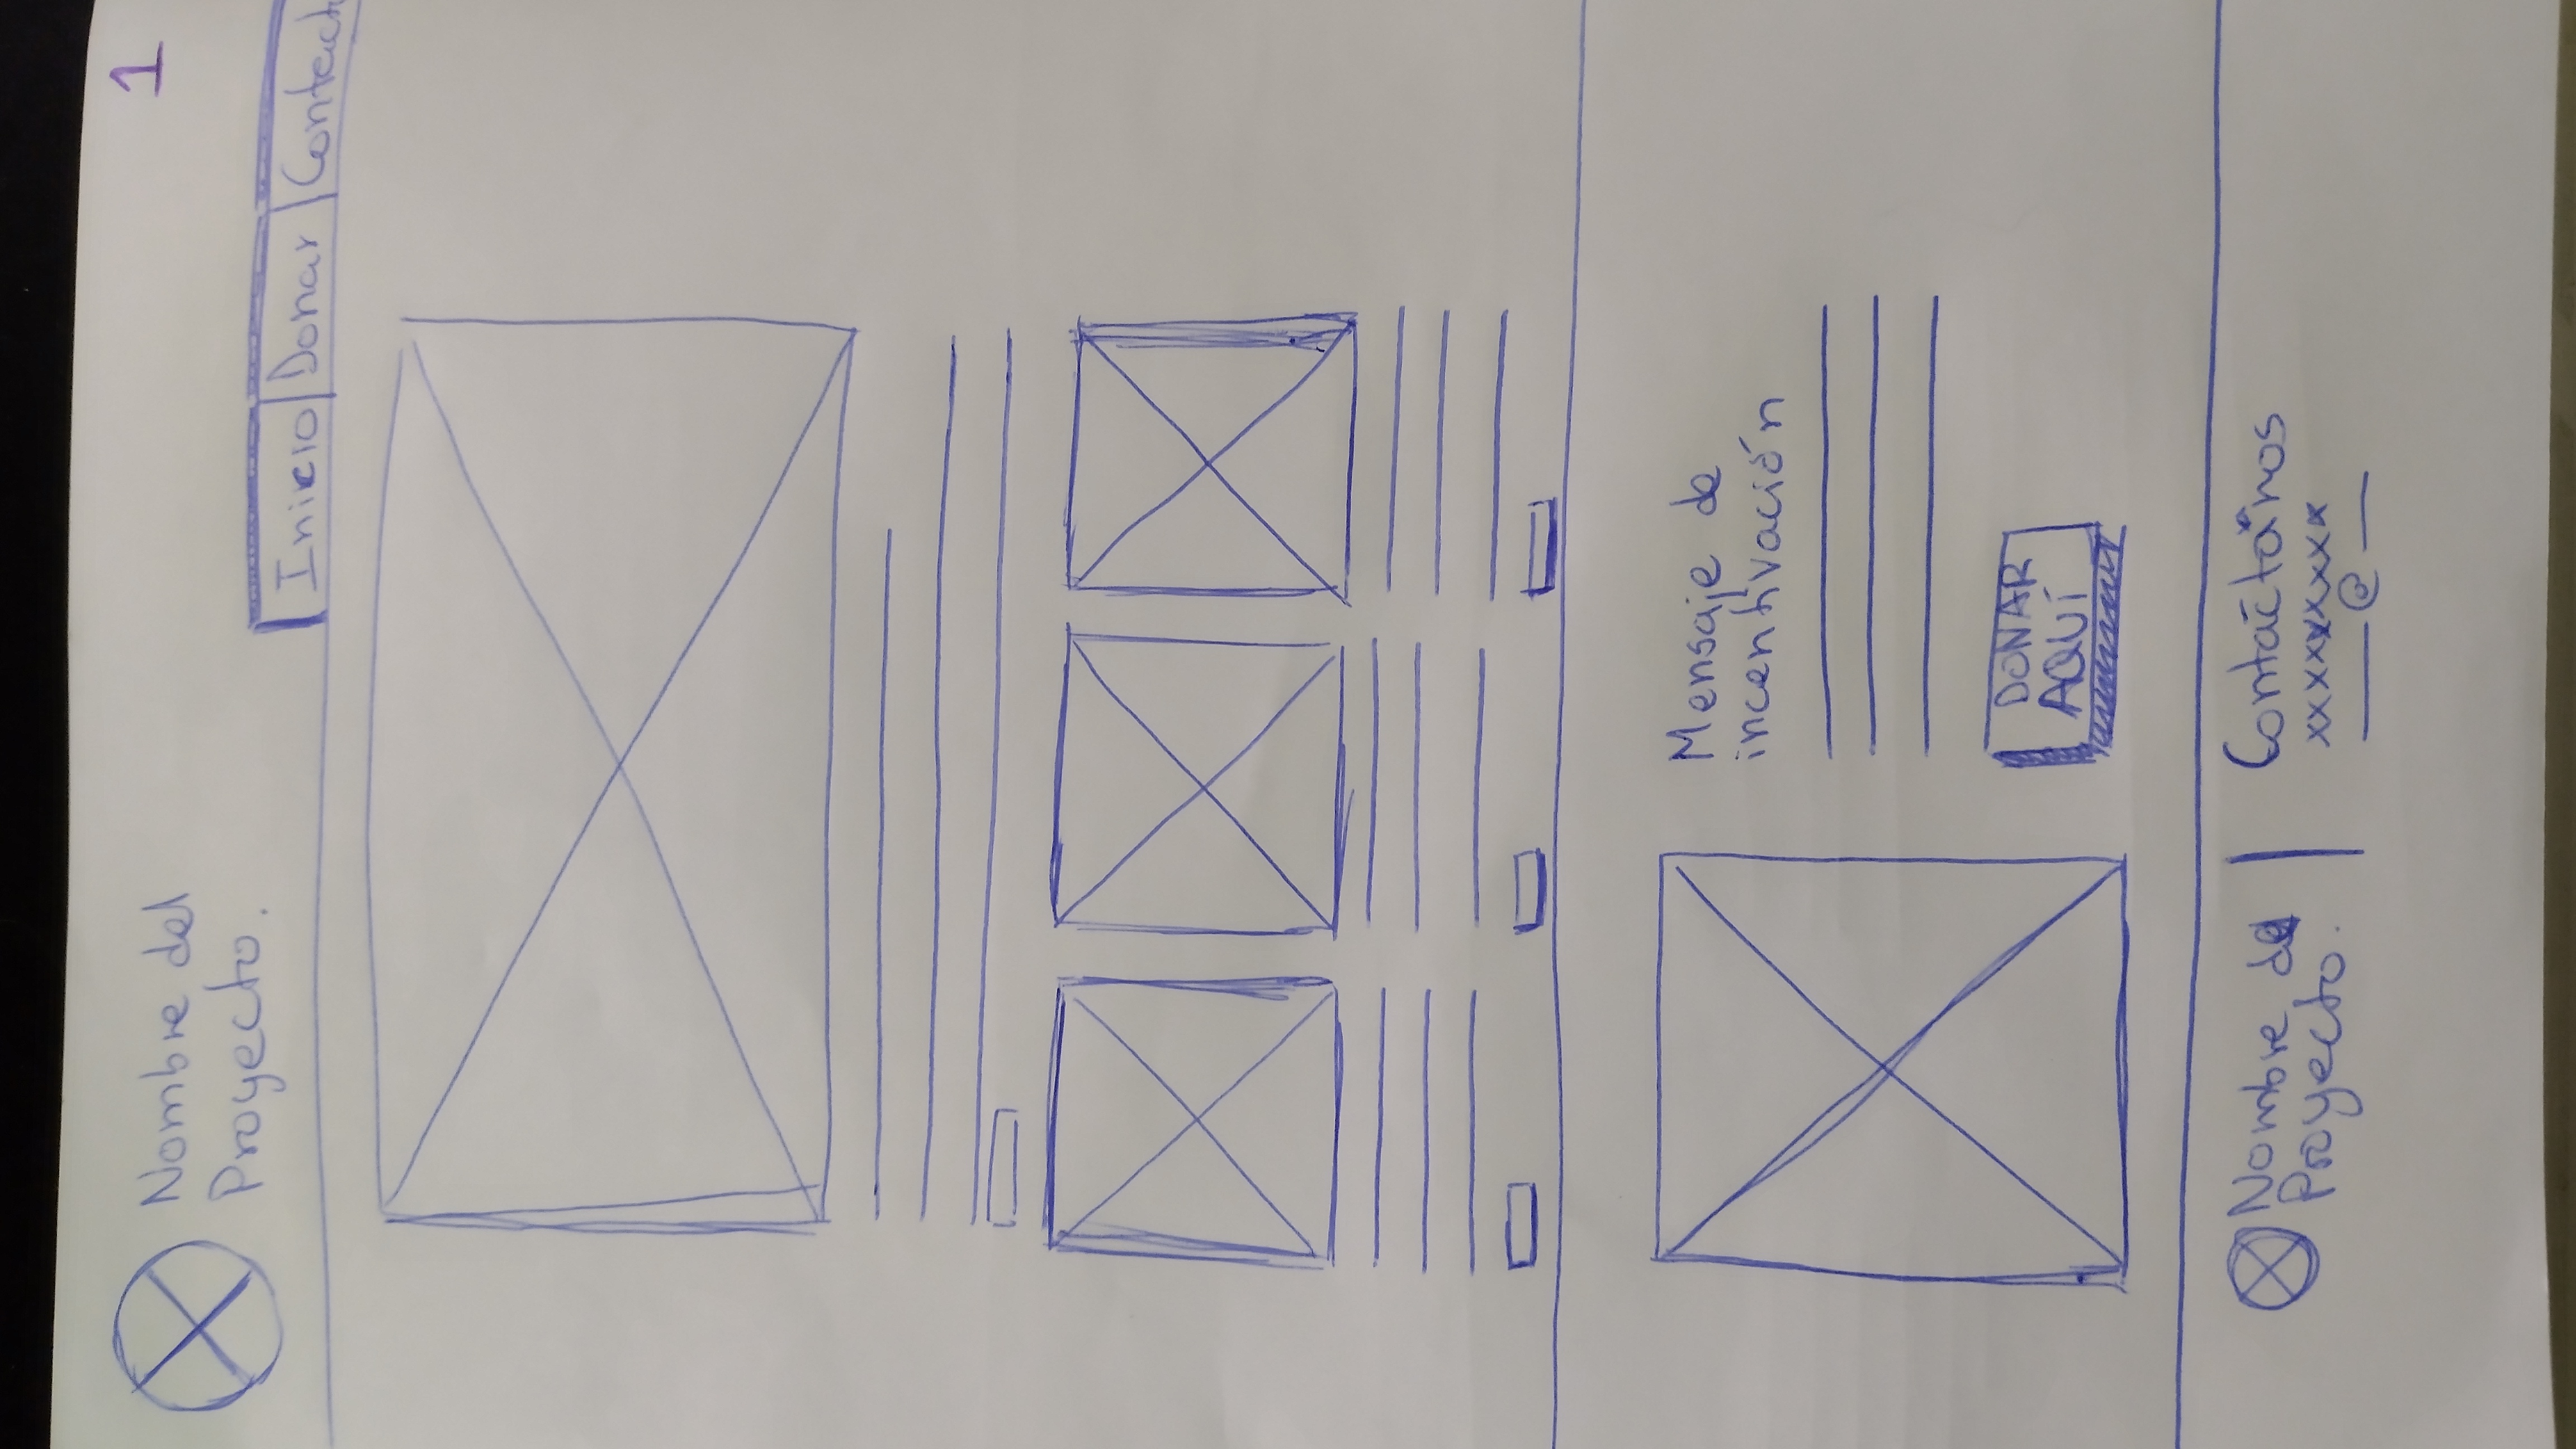 1
Nombre del
Proyecto.
Inicio Donar Contact
Mensaje de
incentivación
DONAR
AQUÍ
Nombre del
Proyecto.
Contáctanos
xxxxxxxxx
@